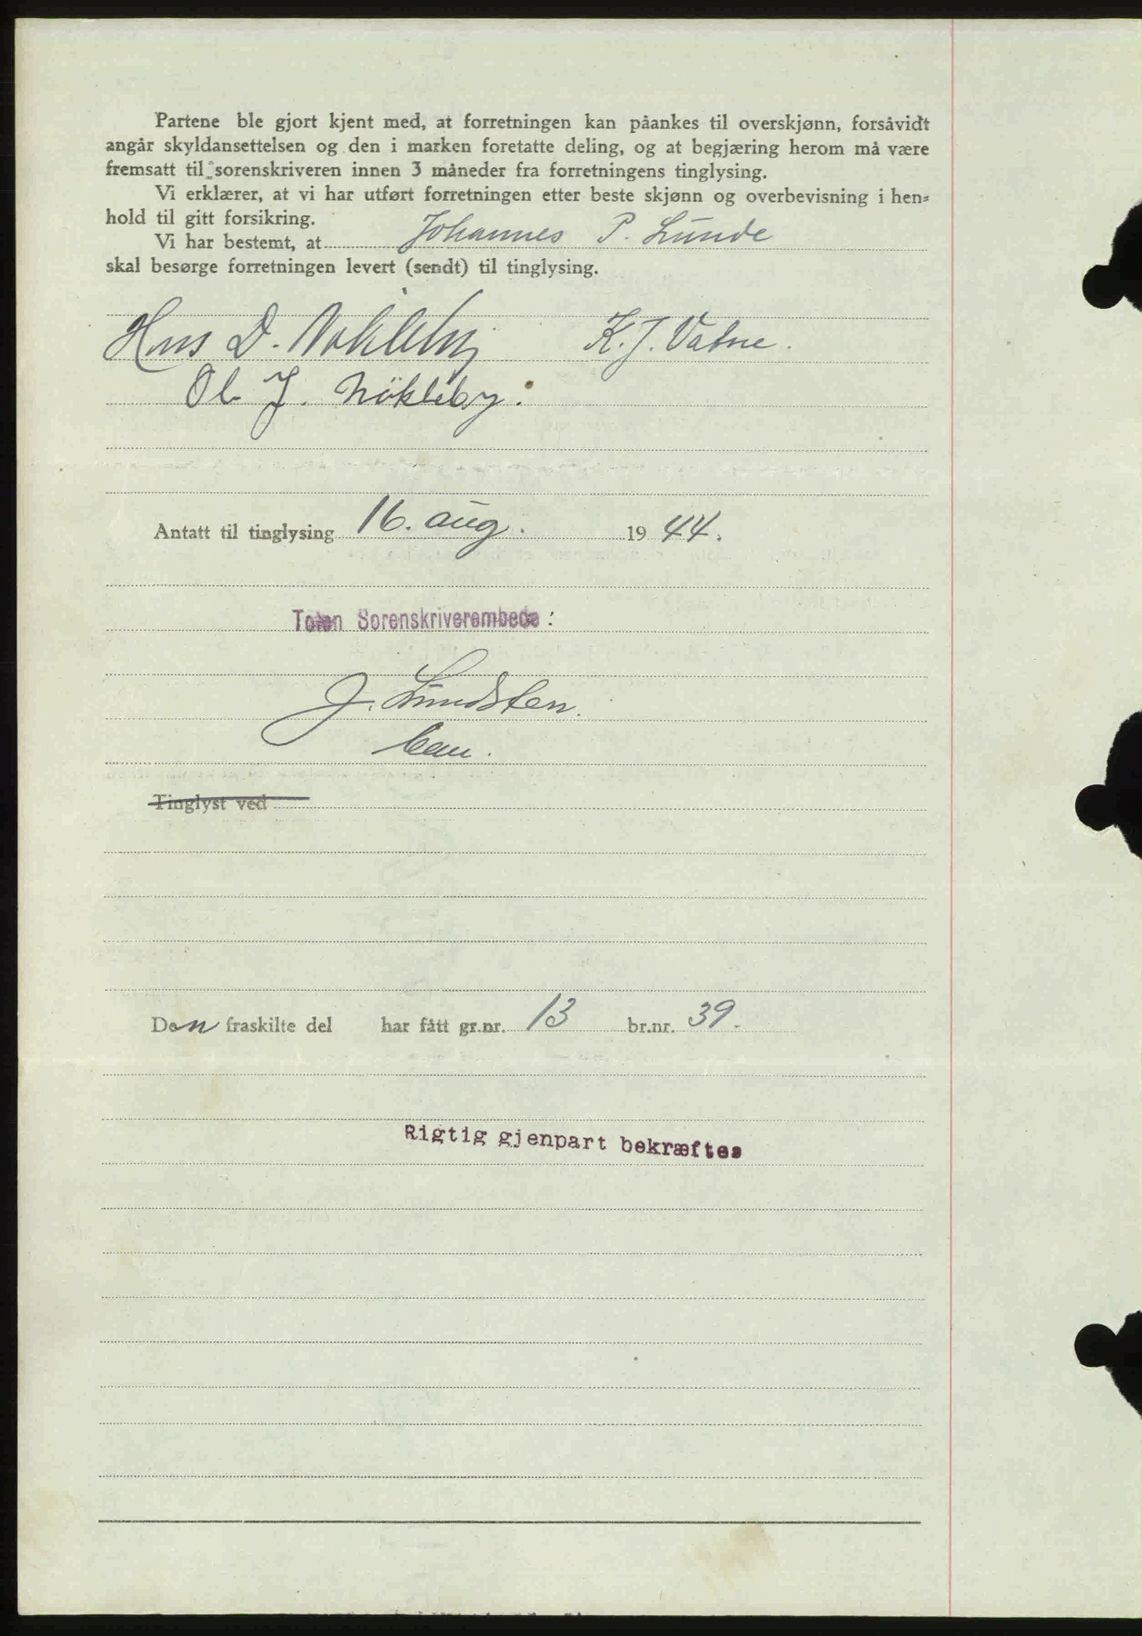 Partene ble gjort kjent med, at forretningen kan påankes til overskjønn, forsåvidt
angår skyldansettelsen og den i marken foretatte deling, og at begjæring herom må være
fremsatt til sorenskriveren innen 3 måneder fra forretningens tinglysing.
Vi erklærer, at vi har utført forretningen etter beste skjønn og overbevisning i hen=
hold til gitt forsikring.
Vi har bestemt, at Johannes P. Lunde
skal besørge forretningen levert (sendt) til tinglysing.
Hans D. Nökleby K. J. Vatne.
Ol. J. Nökleby.
Antatt til tinglysing 16. aug. 19 44.
Toten Sorenskriverembede :
J. Lundsten.
Tinglyst ved
Den fraskilte del har fått gr.nr. 13 br.nr. 39.
Rigtig gjenpart bekræftes